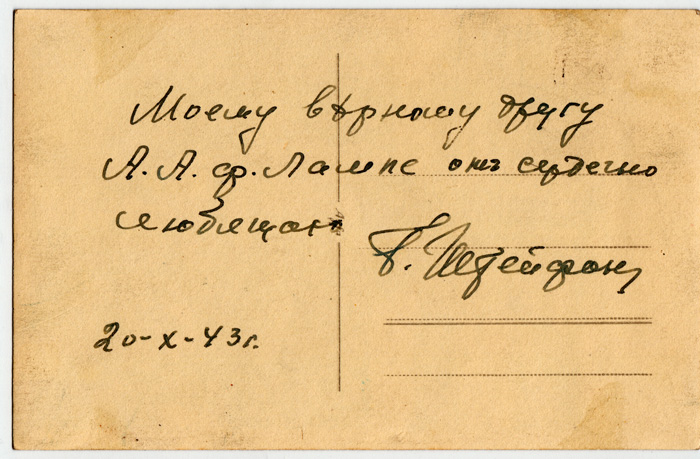 Моему вѣрному другу
А. А. ф. Лампе отъ сердечно
любящаго
Б. Штейфонъ
20-X-43г.